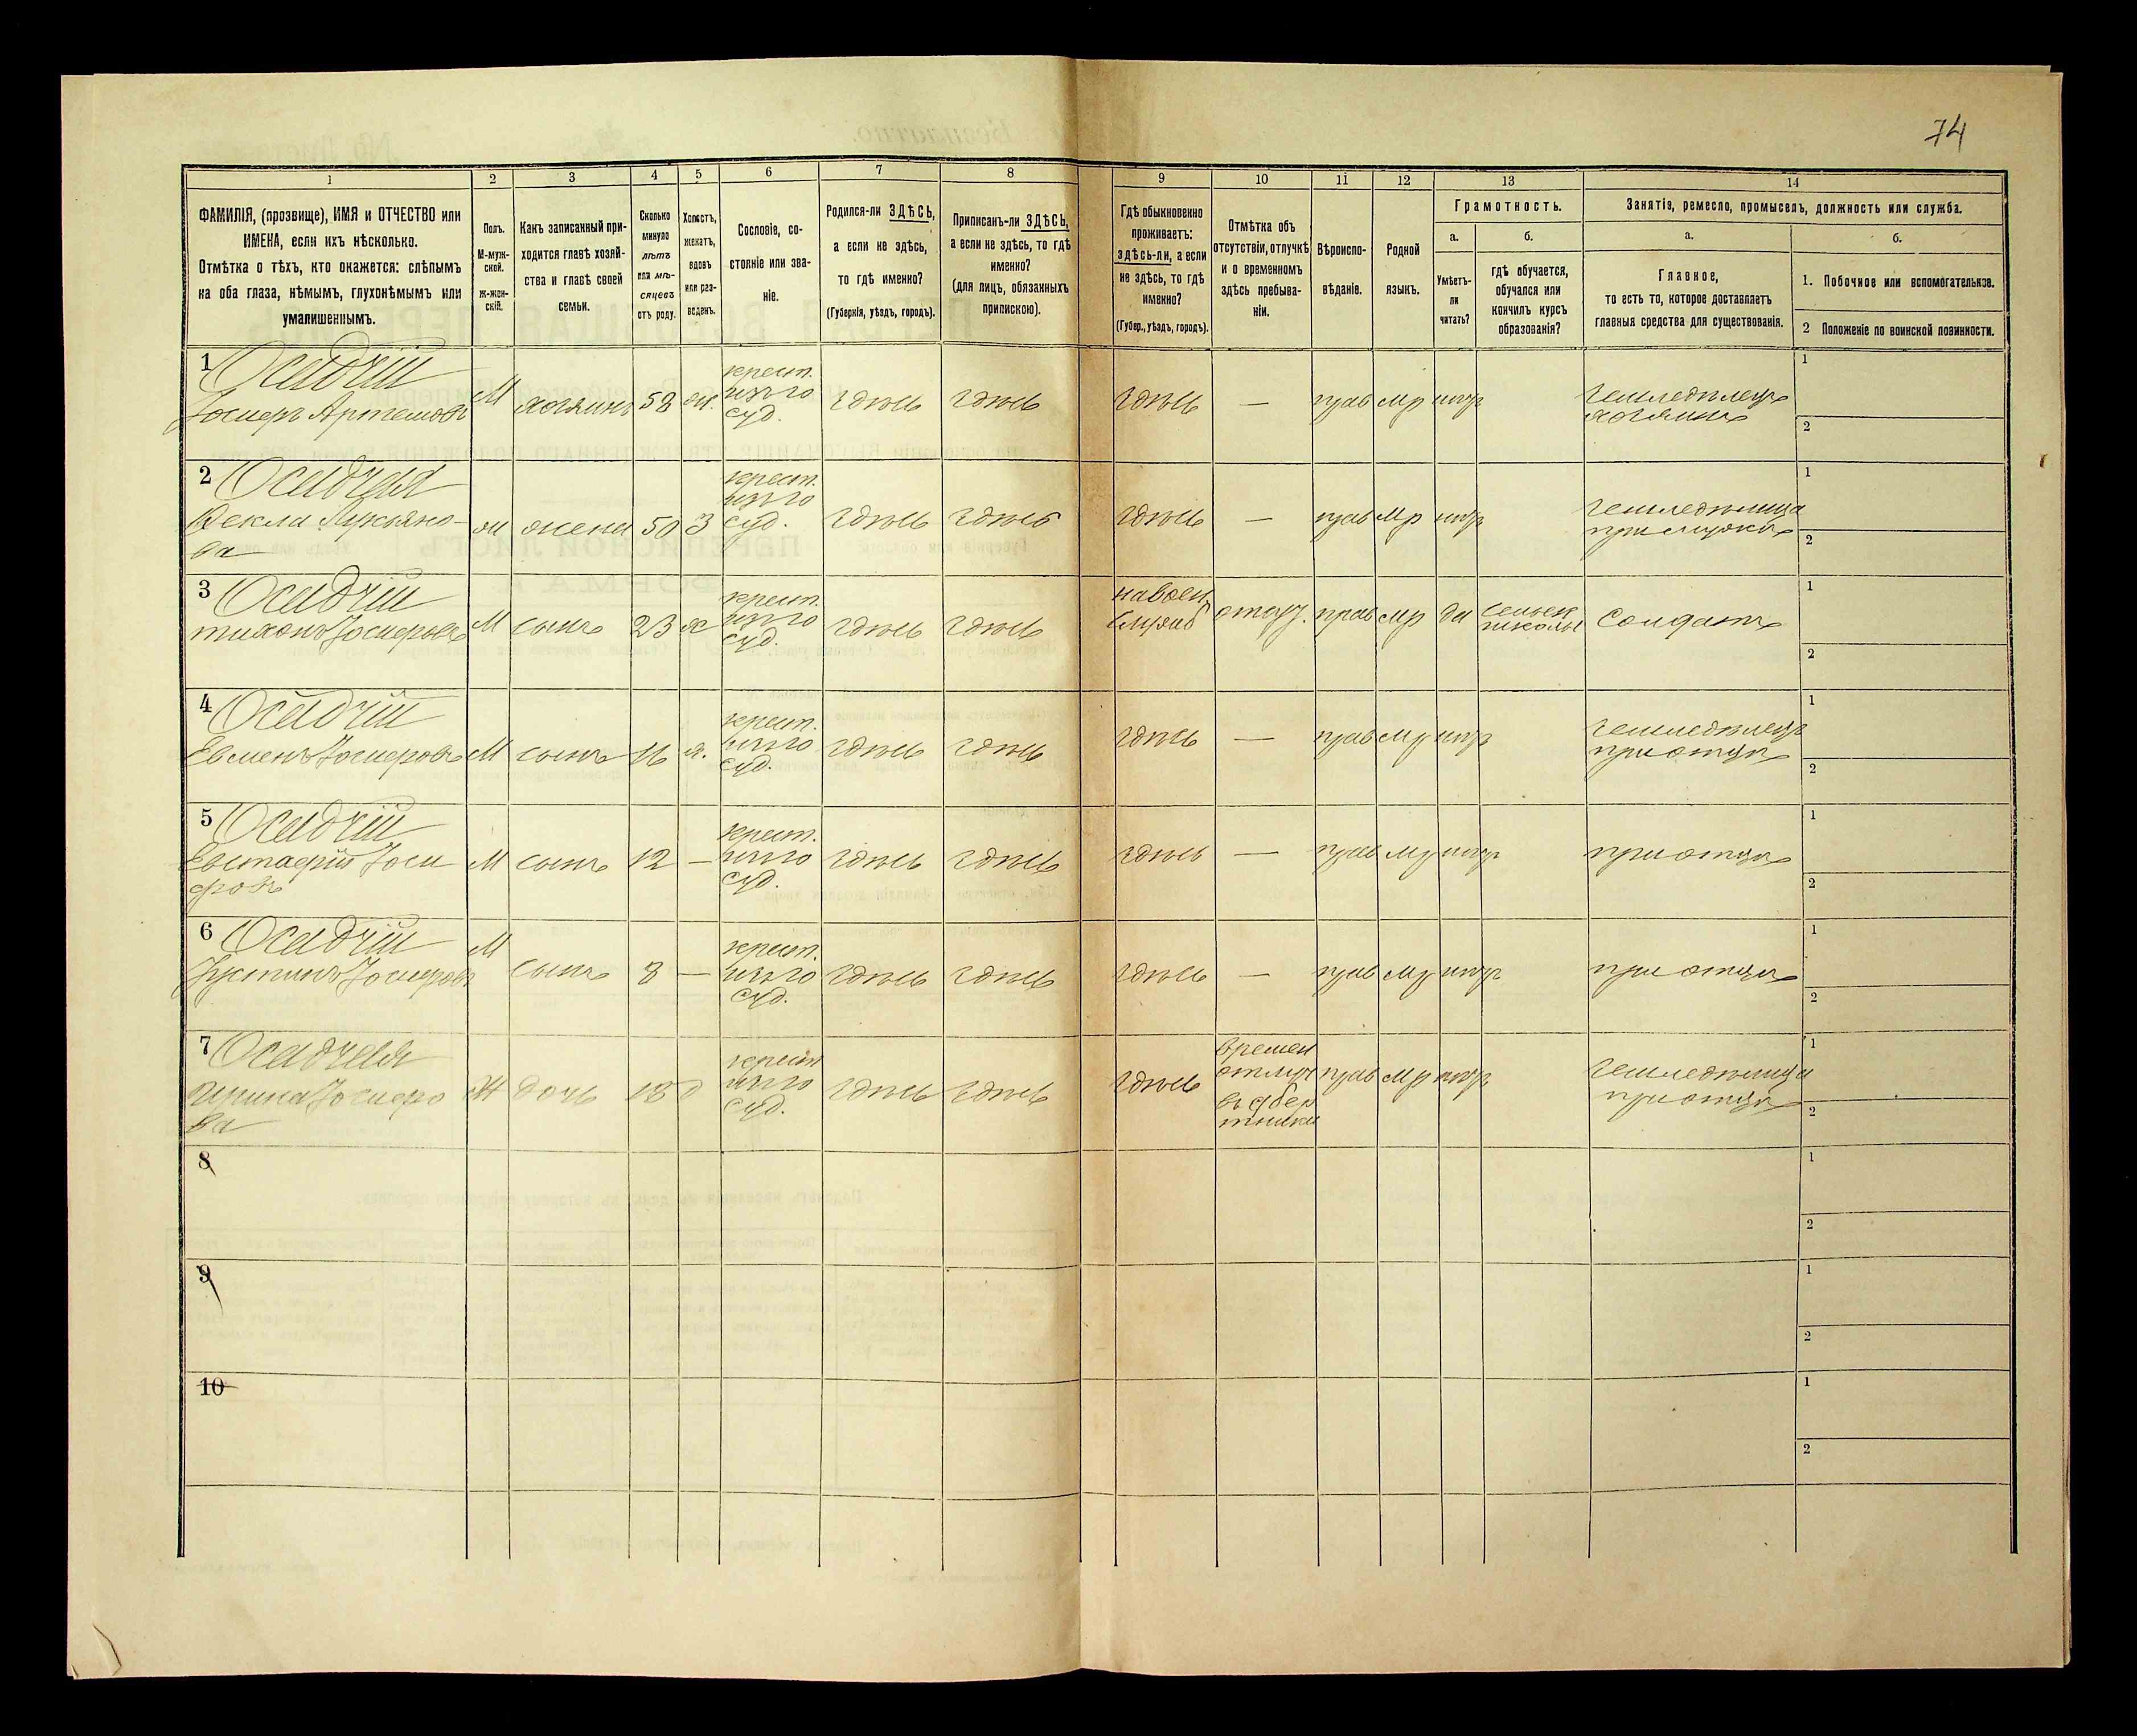 74
1
2
3
4
5
6
7
8
9
10
11
12
13
14
ФАМИЛІЯ, (прозвище), ИМЯ и ОТЧЕСТВО или
ИМЕНА, если ихъ нѣсколько.
Отмѣтка о тѣхъ, кто окажется: слѣпымъ
на оба глаза, нѣмымъ, глухонѣмымъ или
умалишеннымъ.
Полъ.
М-муж-
ской.
Ж-жен-
скій.
Какъ записанный при-
ходится главѣ хозяй-
ства и главѣ своей
семьи.
Сколько
минуло
лѣтъ
или мѣ-
сяцевъ
отъ роду.
Холостъ,
женатъ,
вдовъ
или раз-
веденъ.
Сословіе, со-
стояніе или зва-
ніе.
Родился-ли ЗДѢСЬ,
а если не здѣсь,
то гдѣ именно?
(Губернія, уѣздъ, городъ).
Приписанъ-ли ЗДѢСЬ,
а если не здѣсь, то гдѣ
именно?
(для лицъ, обязанныхъ
припискою).
Гдѣ обыкновенно
проживаетъ:
здѣсь-ли, а если
не здѣсь, то гдѣ
именно?
(Губер., уѣздъ, городъ).
Отмѣтка объ
отсутствіи, отлучкѣ
и о временномъ
здѣсь пребыва-
ніи.
Вѣроиспо-
вѣданіе.
Родной
языкъ.
Грамотность.
а.
Умѣетъ-
ли
читать?
б.
гдѣ обучается,
обучался или
кончилъ курсъ
образованія?
Занятіе, ремесло, промыселъ, должность или служба.
а.
Главное,
то есть то, которое доставляетъ
главныя средства для существованія.
б.
1. Побочное или вспомогательное.
2 Положеніе по воинской повинности.
1 Осадчій
Іосифъ Артемовъ
М хозяинъ 58 ж.
крест.
изъ го
суд.
здѣсь здѣсь здѣсь — прав мр нѣтъ
земледѣлецъ
хозяинъ
1
2
2 Осадчая
Фекла Лукьяно-
ва
ж жена 50 З
крест.
изъ го
суд.
здѣсь здѣсь здѣсь — прав мр нѣтъ
земледѣлица
при мужѣ
1
2
3 Осадчій
тихонъ Іосифовъ
М сынъ 23 х
крест.
изъ го
суд.
здѣсь здѣсь
на воен.
службѣ
отсут. прав мр да
сельск
школы
солдатъ
1
2
4 Осадчій
Евменъ Іосифовъ
М сынъ 16 х.
крест.
изъ го
суд.
здѣсь здѣсь здѣсь — прав мр нѣтъ
земледѣлецъ
при отцѣ
1
2
5 Осадчій
Евстафій Іоси
фовъ
М сынъ 12 —
крест.
изъ го
суд.
здѣсь здѣсь здѣсь — прав мр нѣтъ
при отцѣ
1
2
6 Осадчій
Іустинъ Іосифовъ
М сынъ 8 —
крест.
изъ го
суд.
здѣсь здѣсь здѣсь — прав мр нѣтъ
при отцѣ
1
2
7 Осадчая
Ирина Іосифо
ва
Ж дочь 18 д
крест
изъ го
суд.
здѣсь здѣсь здѣсь
времен
отлуч
прав мр нѣтъ
земледѣлица
при отцѣ
1
2
8
1
2
9
1
2
10
1
2